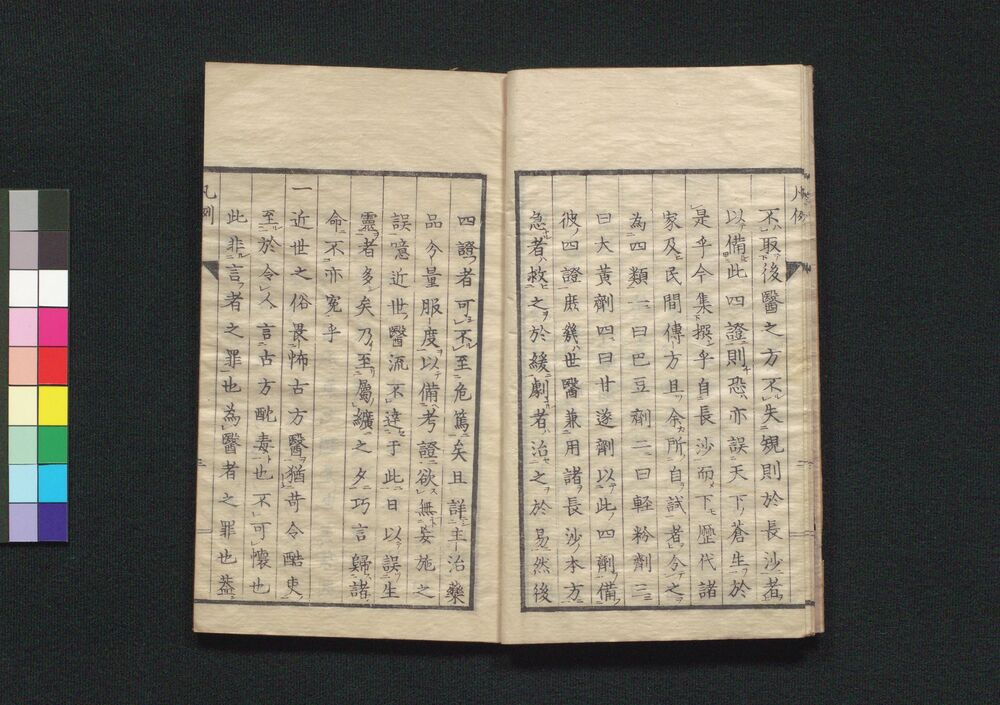 不取後醫之方不失規則於長沙者
以備此四證則恐亦誤天下蒼生於
是乎今集撰乎自長沙而下歷代諸
家及民間傳方且余所自試者分之
為四類一曰巴豆劑二曰軽粉劑三
曰大黃劑四曰甘遂劑以此四劑備
彼四證庶幾世醫兼用諸長沙本方
急者救之於緩劇者治之於易然後
四證者可不至危篤矣且詳主治藥
品分量服度以備考證欲無妄施之
誤噫近世醫流不達于此日以誤生
靈者多矣乃至屬纊之夕巧言歸諸
命不亦寃乎
一近世之俗畏怖古方醫猶苛令酷吏
至於令人言古方酖毒也不可懷也
此非言者之罪也為醫者之罪也葢
凡例